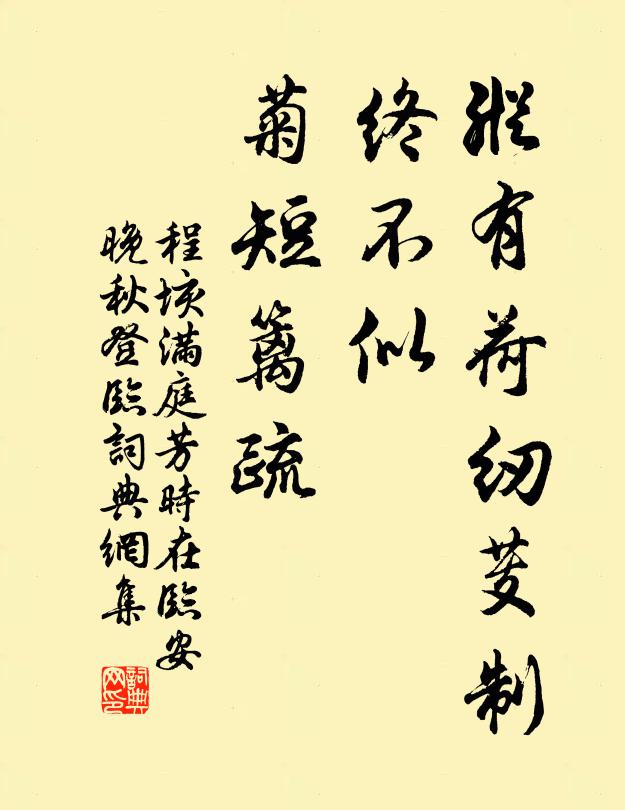 縱有荷紉芰制
終不似
菊短籬疏
程垓滿庭芳時在臨安
晚秋登臨詞典網集
詞典
网印